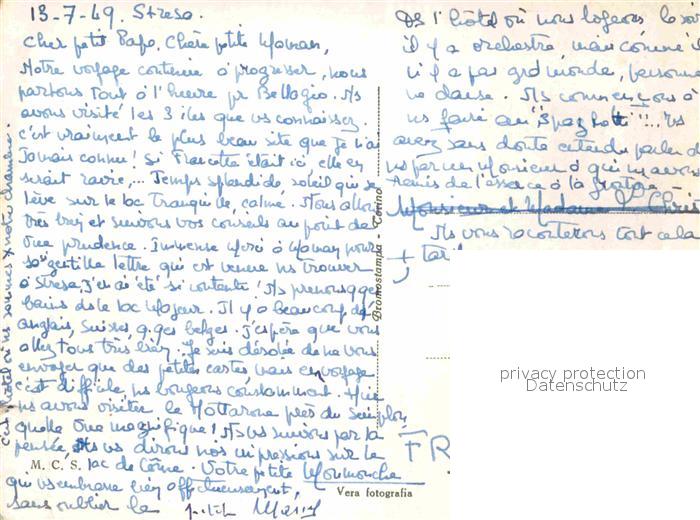 13-7-49. Stresa.
Cher petit Papa, Chère petite Maman,
Notre voyage continue à progresser, nous
partons tout à l'heure pr Bellagio. Ns
avons visité les 3 îles que vs connaissez.
c'est vraiment le plus beau site que je n'ai
jamais connu! Si Francette était ici elle en
serait ravie,... Temps splendide, soleil qui se
lève sur le lac tranquille, calme. Nous allons
très bien et suivons vos conseils au point de
vue prudence. Immense Merci à Maman pour
sa gentille lettre qui est venue ns trouver
à Stresa, j'en ai été si contente! Ns prenons qqes
bains ds le lac Majeur. Il y a beaucoup d'
anglais, suisses, qqes belges. J'espère que vous
allez tous très bien. Je suis désolée de ne vous
envoyer que des petites cartes, mais en voyage
c'est difficile ns bougeons constamment. Hier
ns avons visité le Mottarone près du Simplon,
quelle vue magnifique! Ns vs suivons par la
pensée, Ns vs dirons nos impressions sur le
M. C. S. lac de Côme. Votre petite
qui vs embrasse bien affectueusement,
sans oublier le petit
Vera fotografia
c'est l'hôtel où ns sommes x notre chambre.
Bromostampa - Torino
Ds l'hôtel où nous logeons le soir
il y a orchestre, mais comme il
n'y a pas grd monde, personne
ne danse. Ns commençons à
ns faire au "Spaghetti"!.. Vs
avez sans doute entendu parler de
ns par un Monsieur à qui ns avons
remis de l'essence à la frontière.
Monsieur et Madame
Ns vous raconterons tout cela
+ tar
FR
privacy protection
Datenschutz